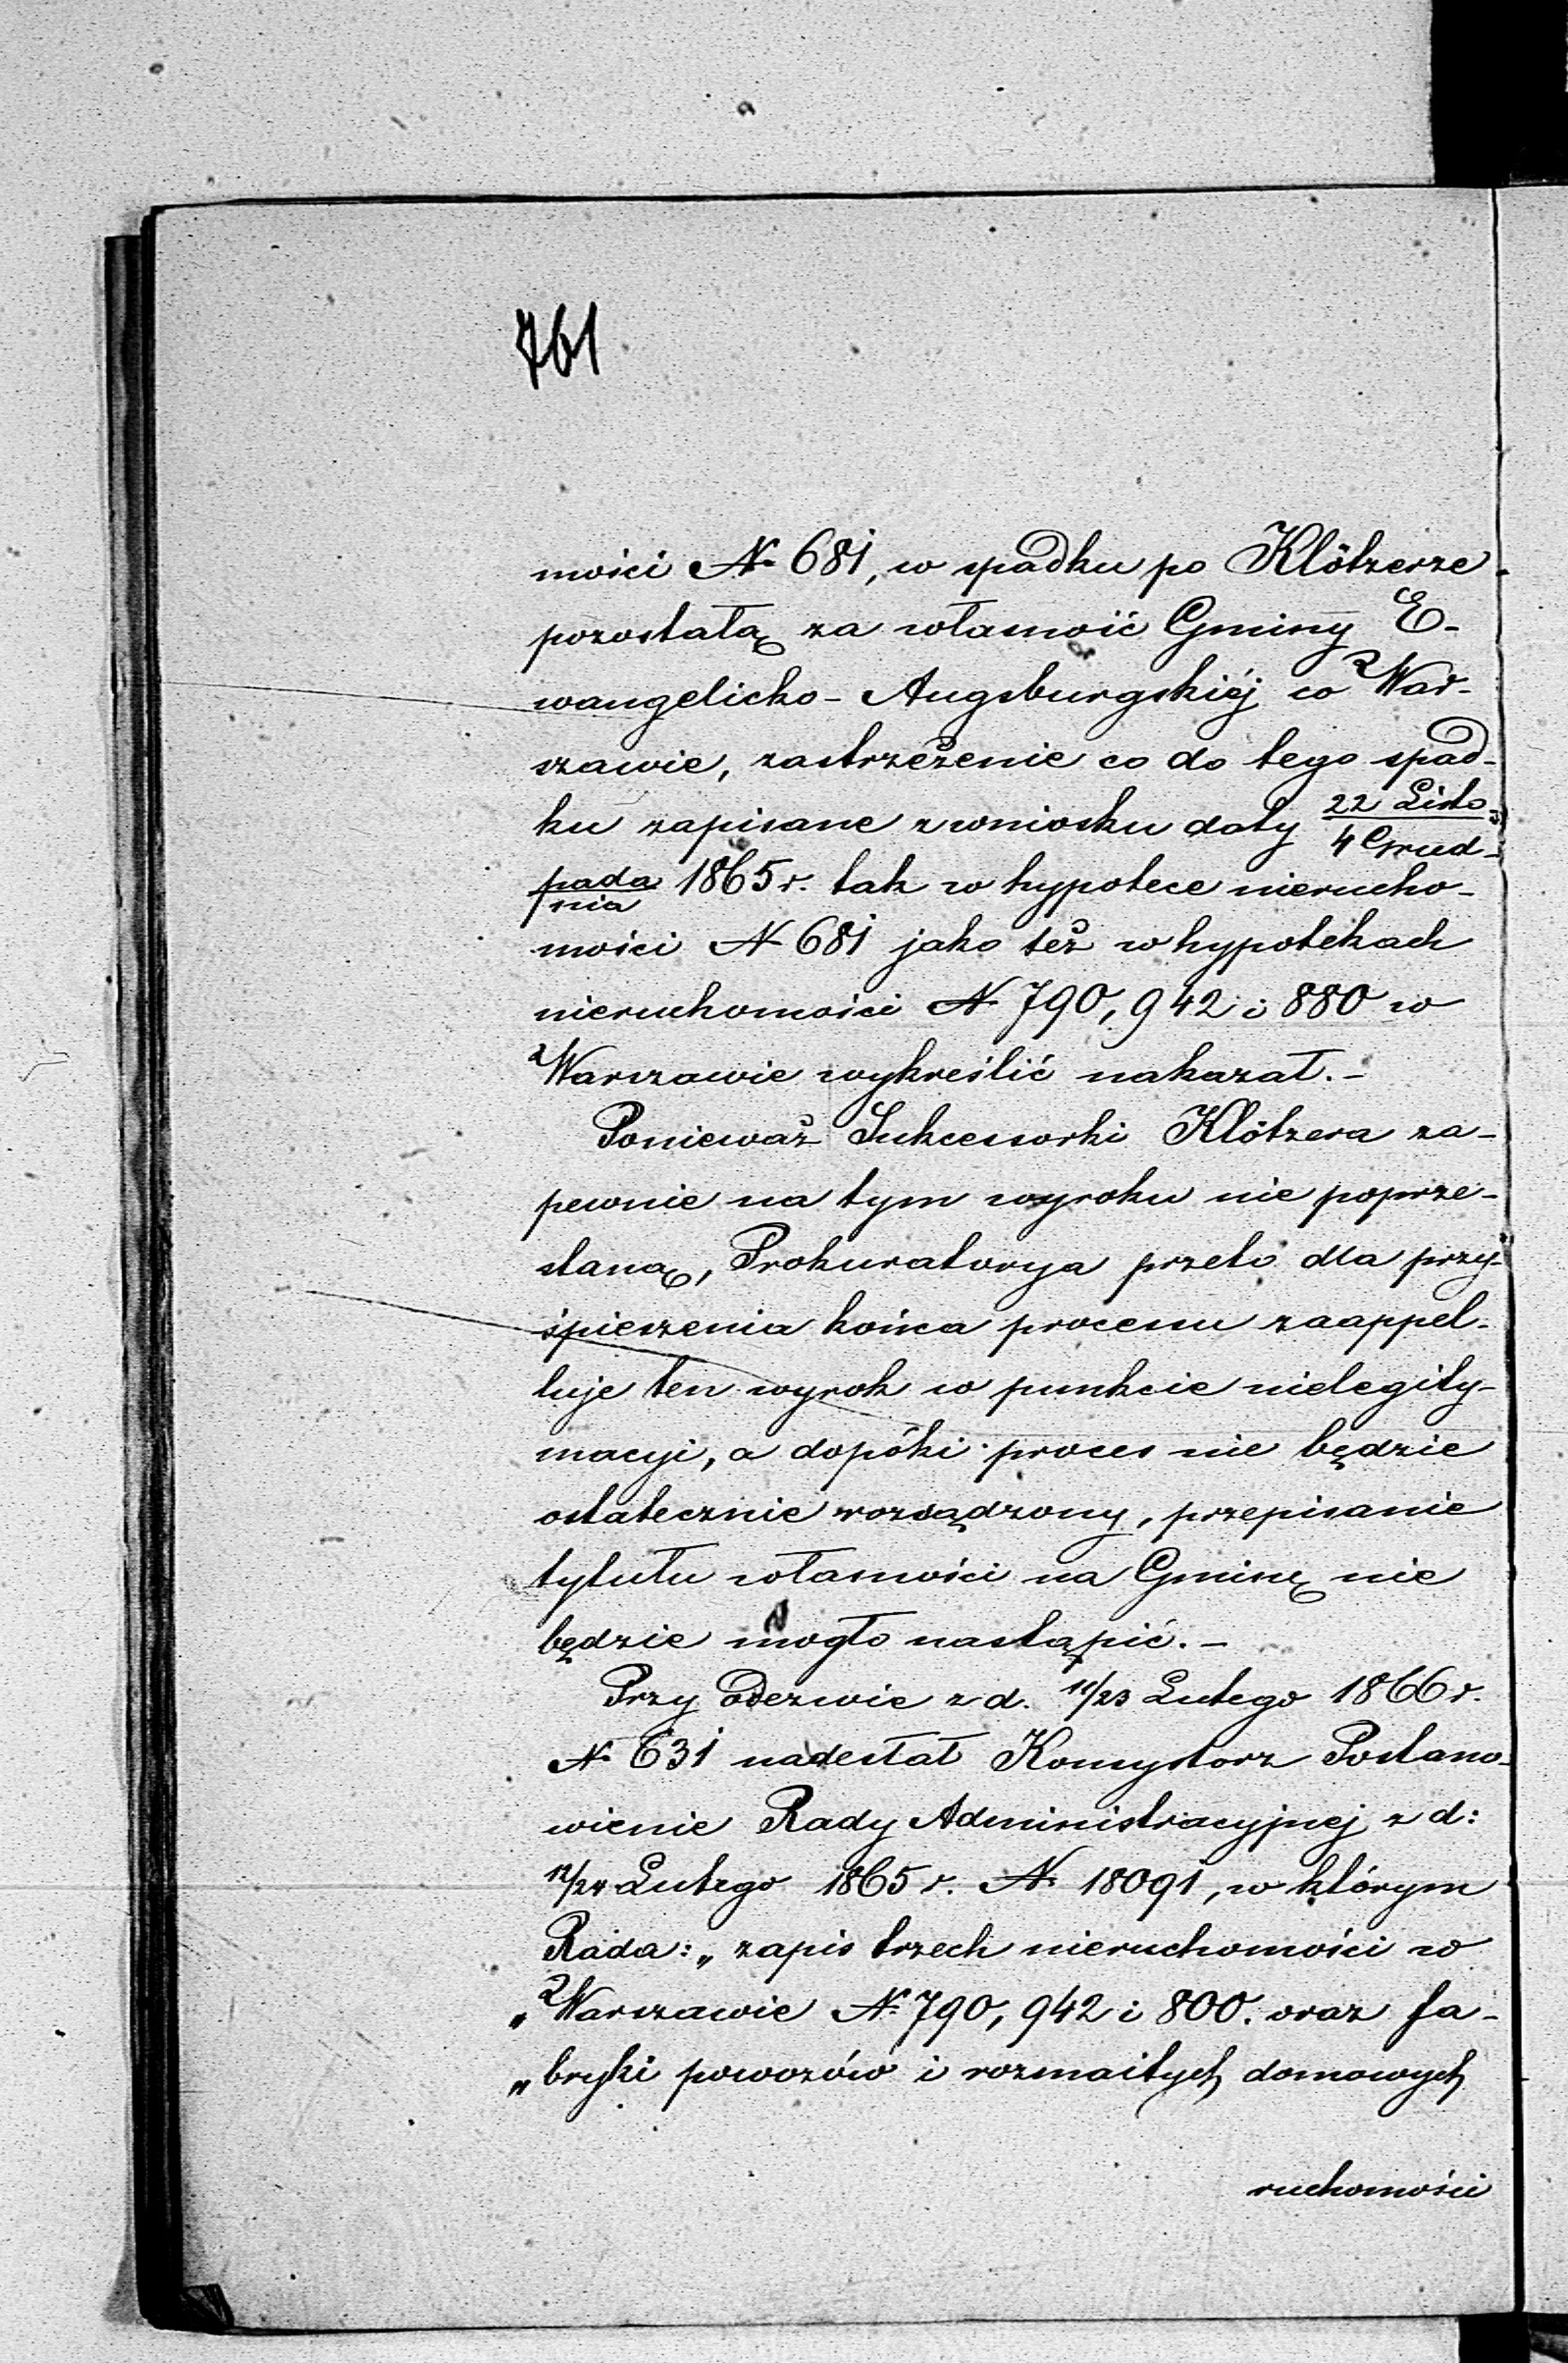 761
mości № 681, w spadku po Klötzerze
pozostałą za własność Gminy E-
wangelicko-Augsburgskiéj w War-
szawie, zastrzeżenie co do tego spad-
ku zapisane z wniosku daty 22 Listo-/4 Grud-
pada/nia 1865 r. tak w hypotece nierucho-
mości № 681 jako też w hypotekach
nieruchomości № 790, 942 i 880 w
Warszawie wykreślić nakazał.-
Ponieważ Sukcessorki Klötzera za-
pewnie na tym wyroku nie poprze-
staną, Prokuratorya przeto dla przy-
śpieszenia końca procesu zaappel-
luje ten wyrok w punkcie nielegity-
macyi, a dopóki proces nie będzie
ostatecznie rozsądzony, przepisanie
tytułu własności na Gminę nie
będzie mogło nastąpić.-
Przy odezwie z d. 11/23 Lutego 1866 r.
№ 631 nadesłał Konsystorz Postano-
wienie Rady Administracyjnej z d:
12/24 Lutego 1865 r. № 18091, w którym
Rada: „zapis trzech nieruchomości w
„Warszawie № 790, 942 i 800. oraz fa-
„bryki powozów i rozmaitych domowych
ruchomości